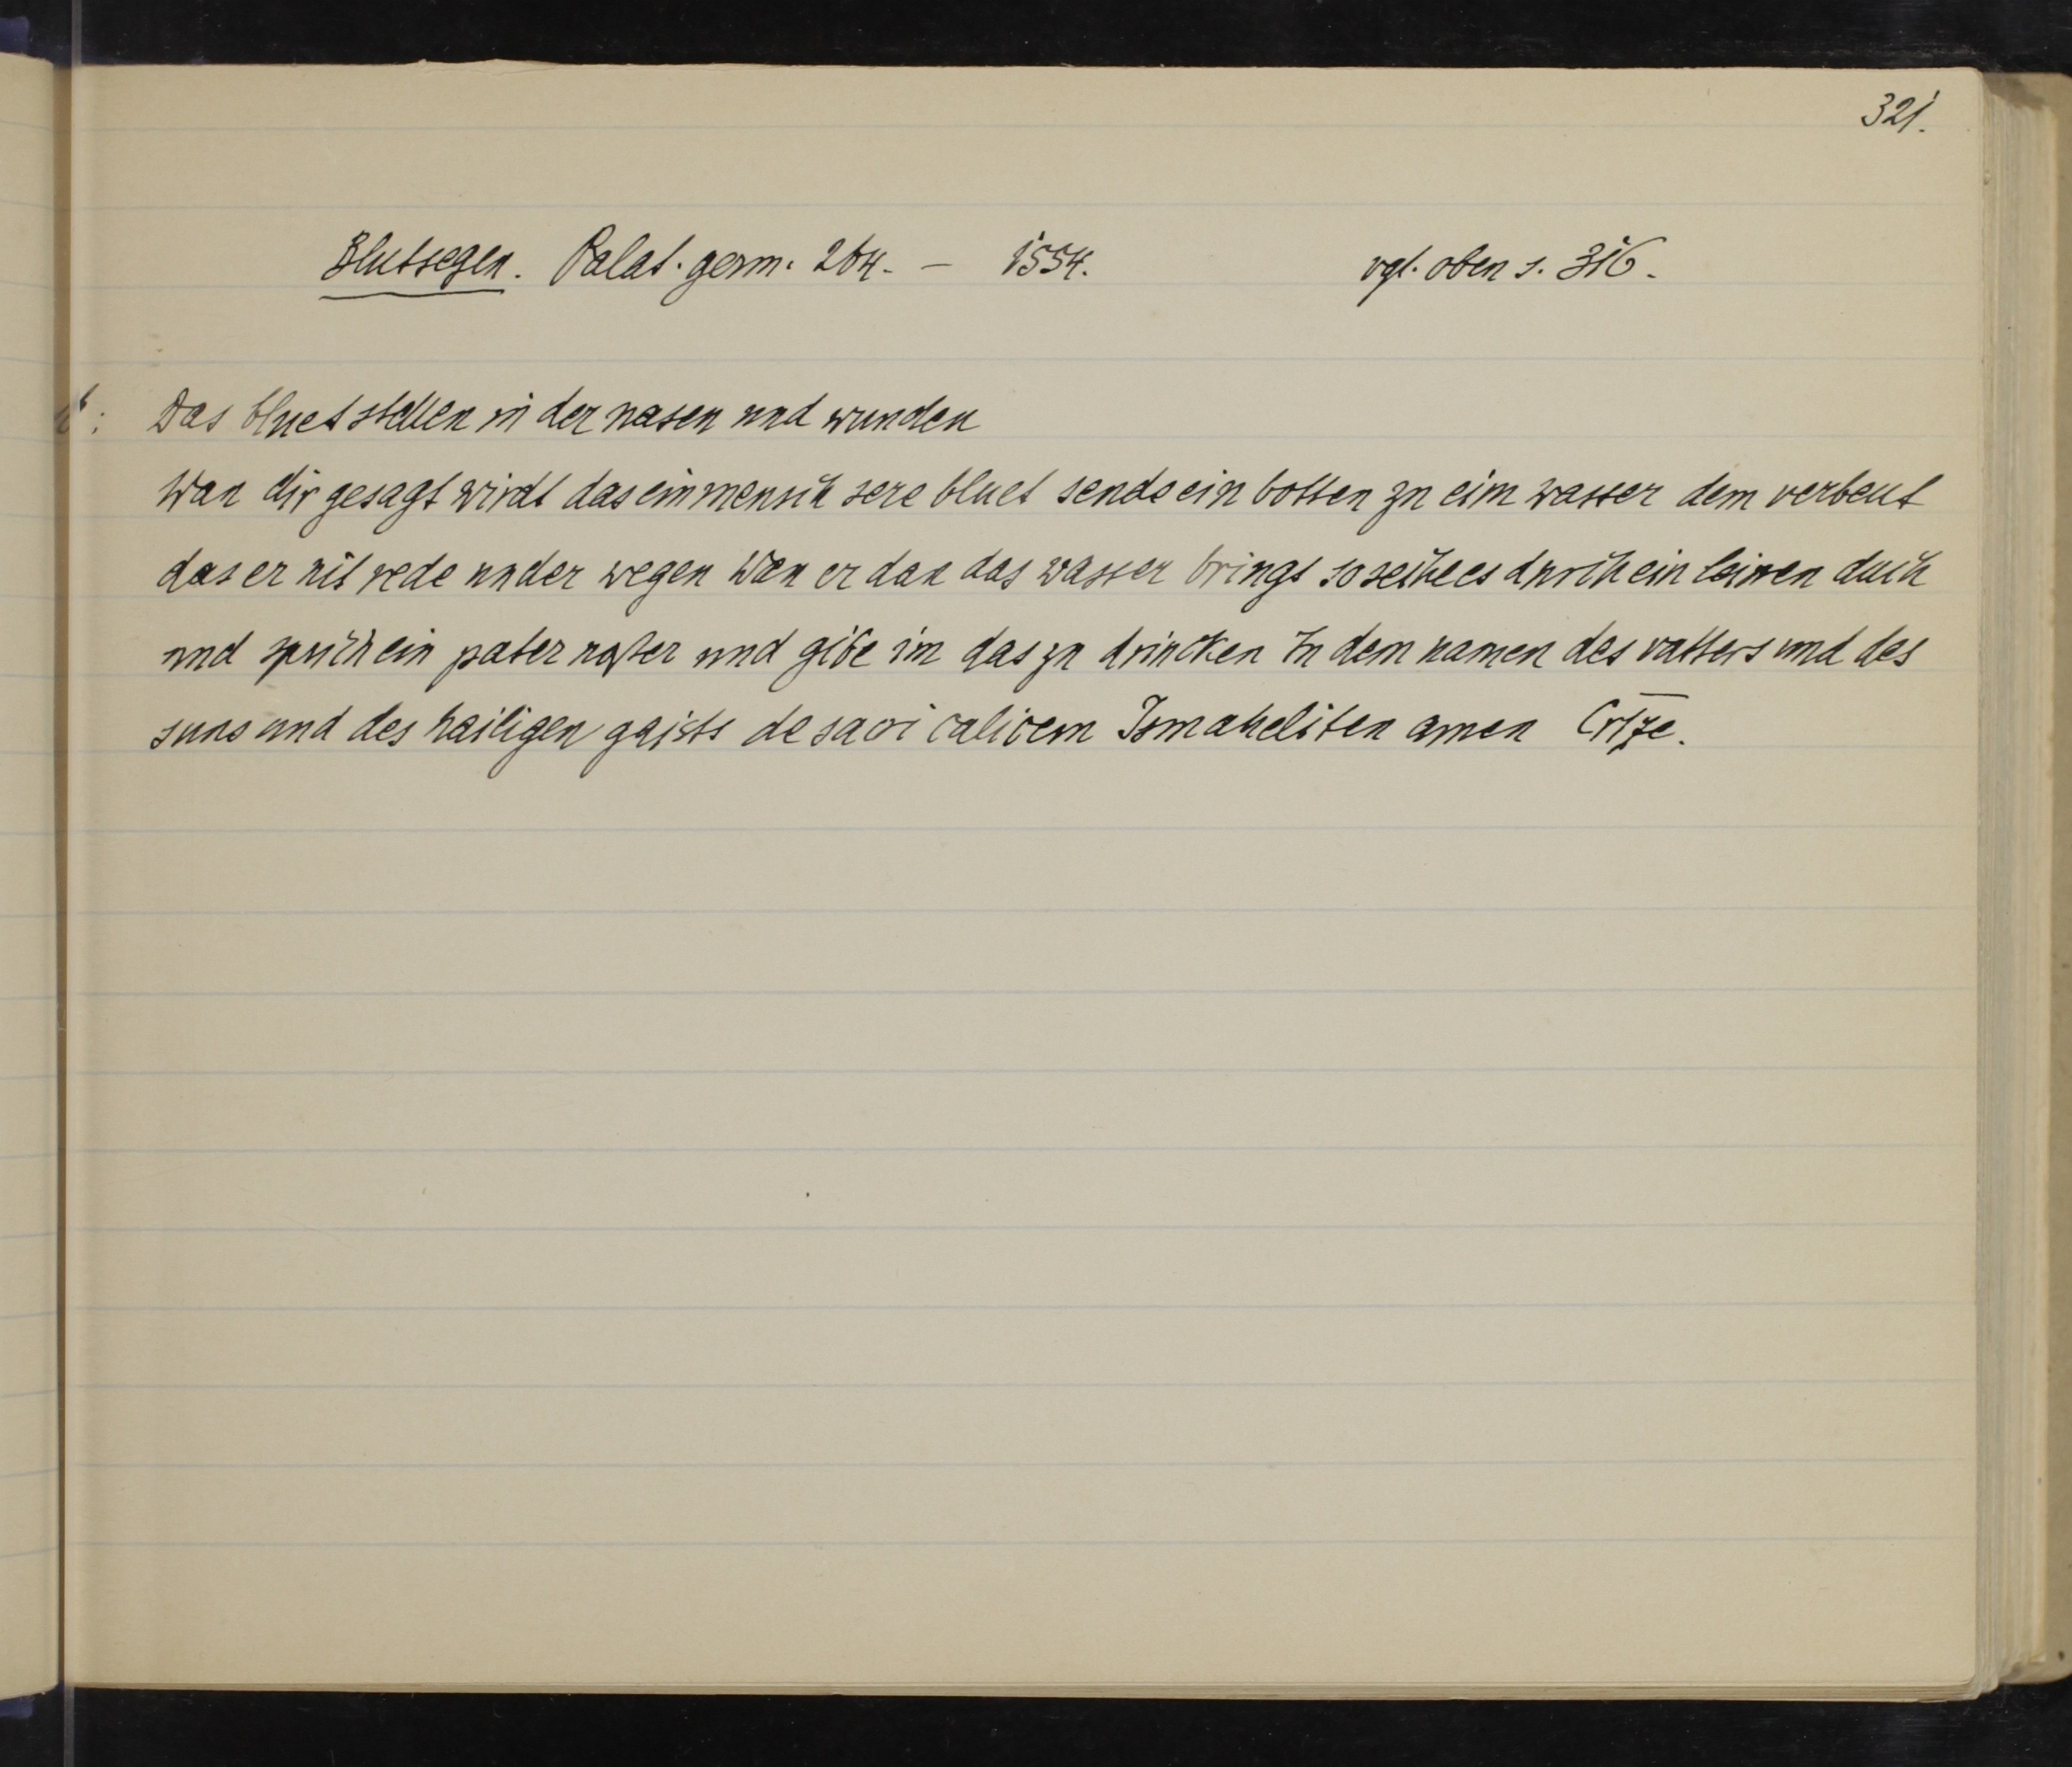 321.
Blutsegen. Palat. germ. 264. — 1554. vgl. oben s. 316.
Das bluet stellen in der nasen und wunden
Wan dir gesagt wirdt das ein mensch sere bluet sende ein botten zu eim wasser dem verbeut
das er nit rede under wegen Wan er dan das wasser bringt so seihe es durch ein leinen duch
und sprich ein pater noster und gibe im das zu drincken In dem namen des vatters und des
suns und des hailigen gaists de sacri calicem Ismaheliten amen